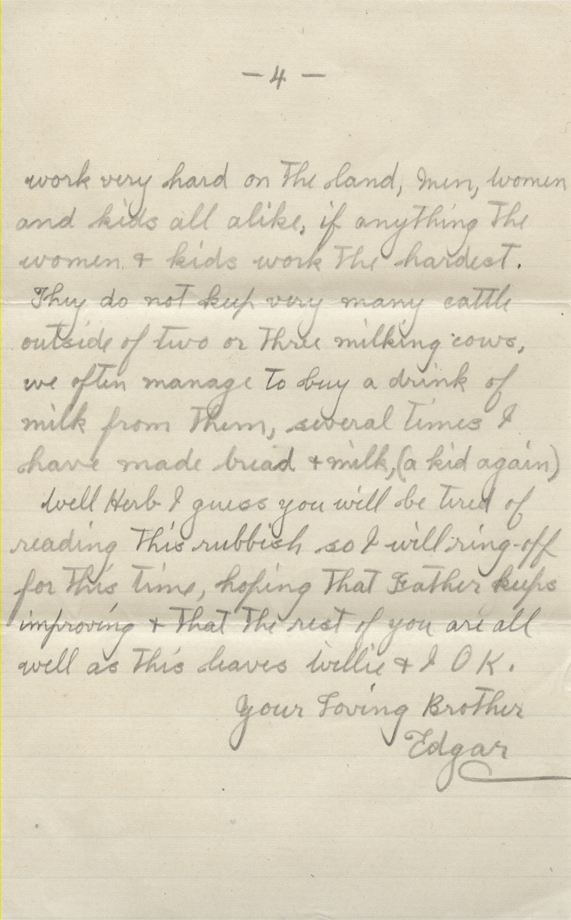 — 4 —
work very hard on the land, men, women
and kids all alike, if anything the
women & kids work the hardest.
They do not keep very many cattle
outside of two or three milking cows,
we often manage to buy a drink of
milk from them, several times I
have made bread & milk, (a kid again)
Well Herb I guess you will be tired of
reading this rubbish so I will ring-off
for this time, hoping that Father keeps
improving & that the rest of you are all
well as this leaves Willie & I O K.
Your Loving Brother
Edgar